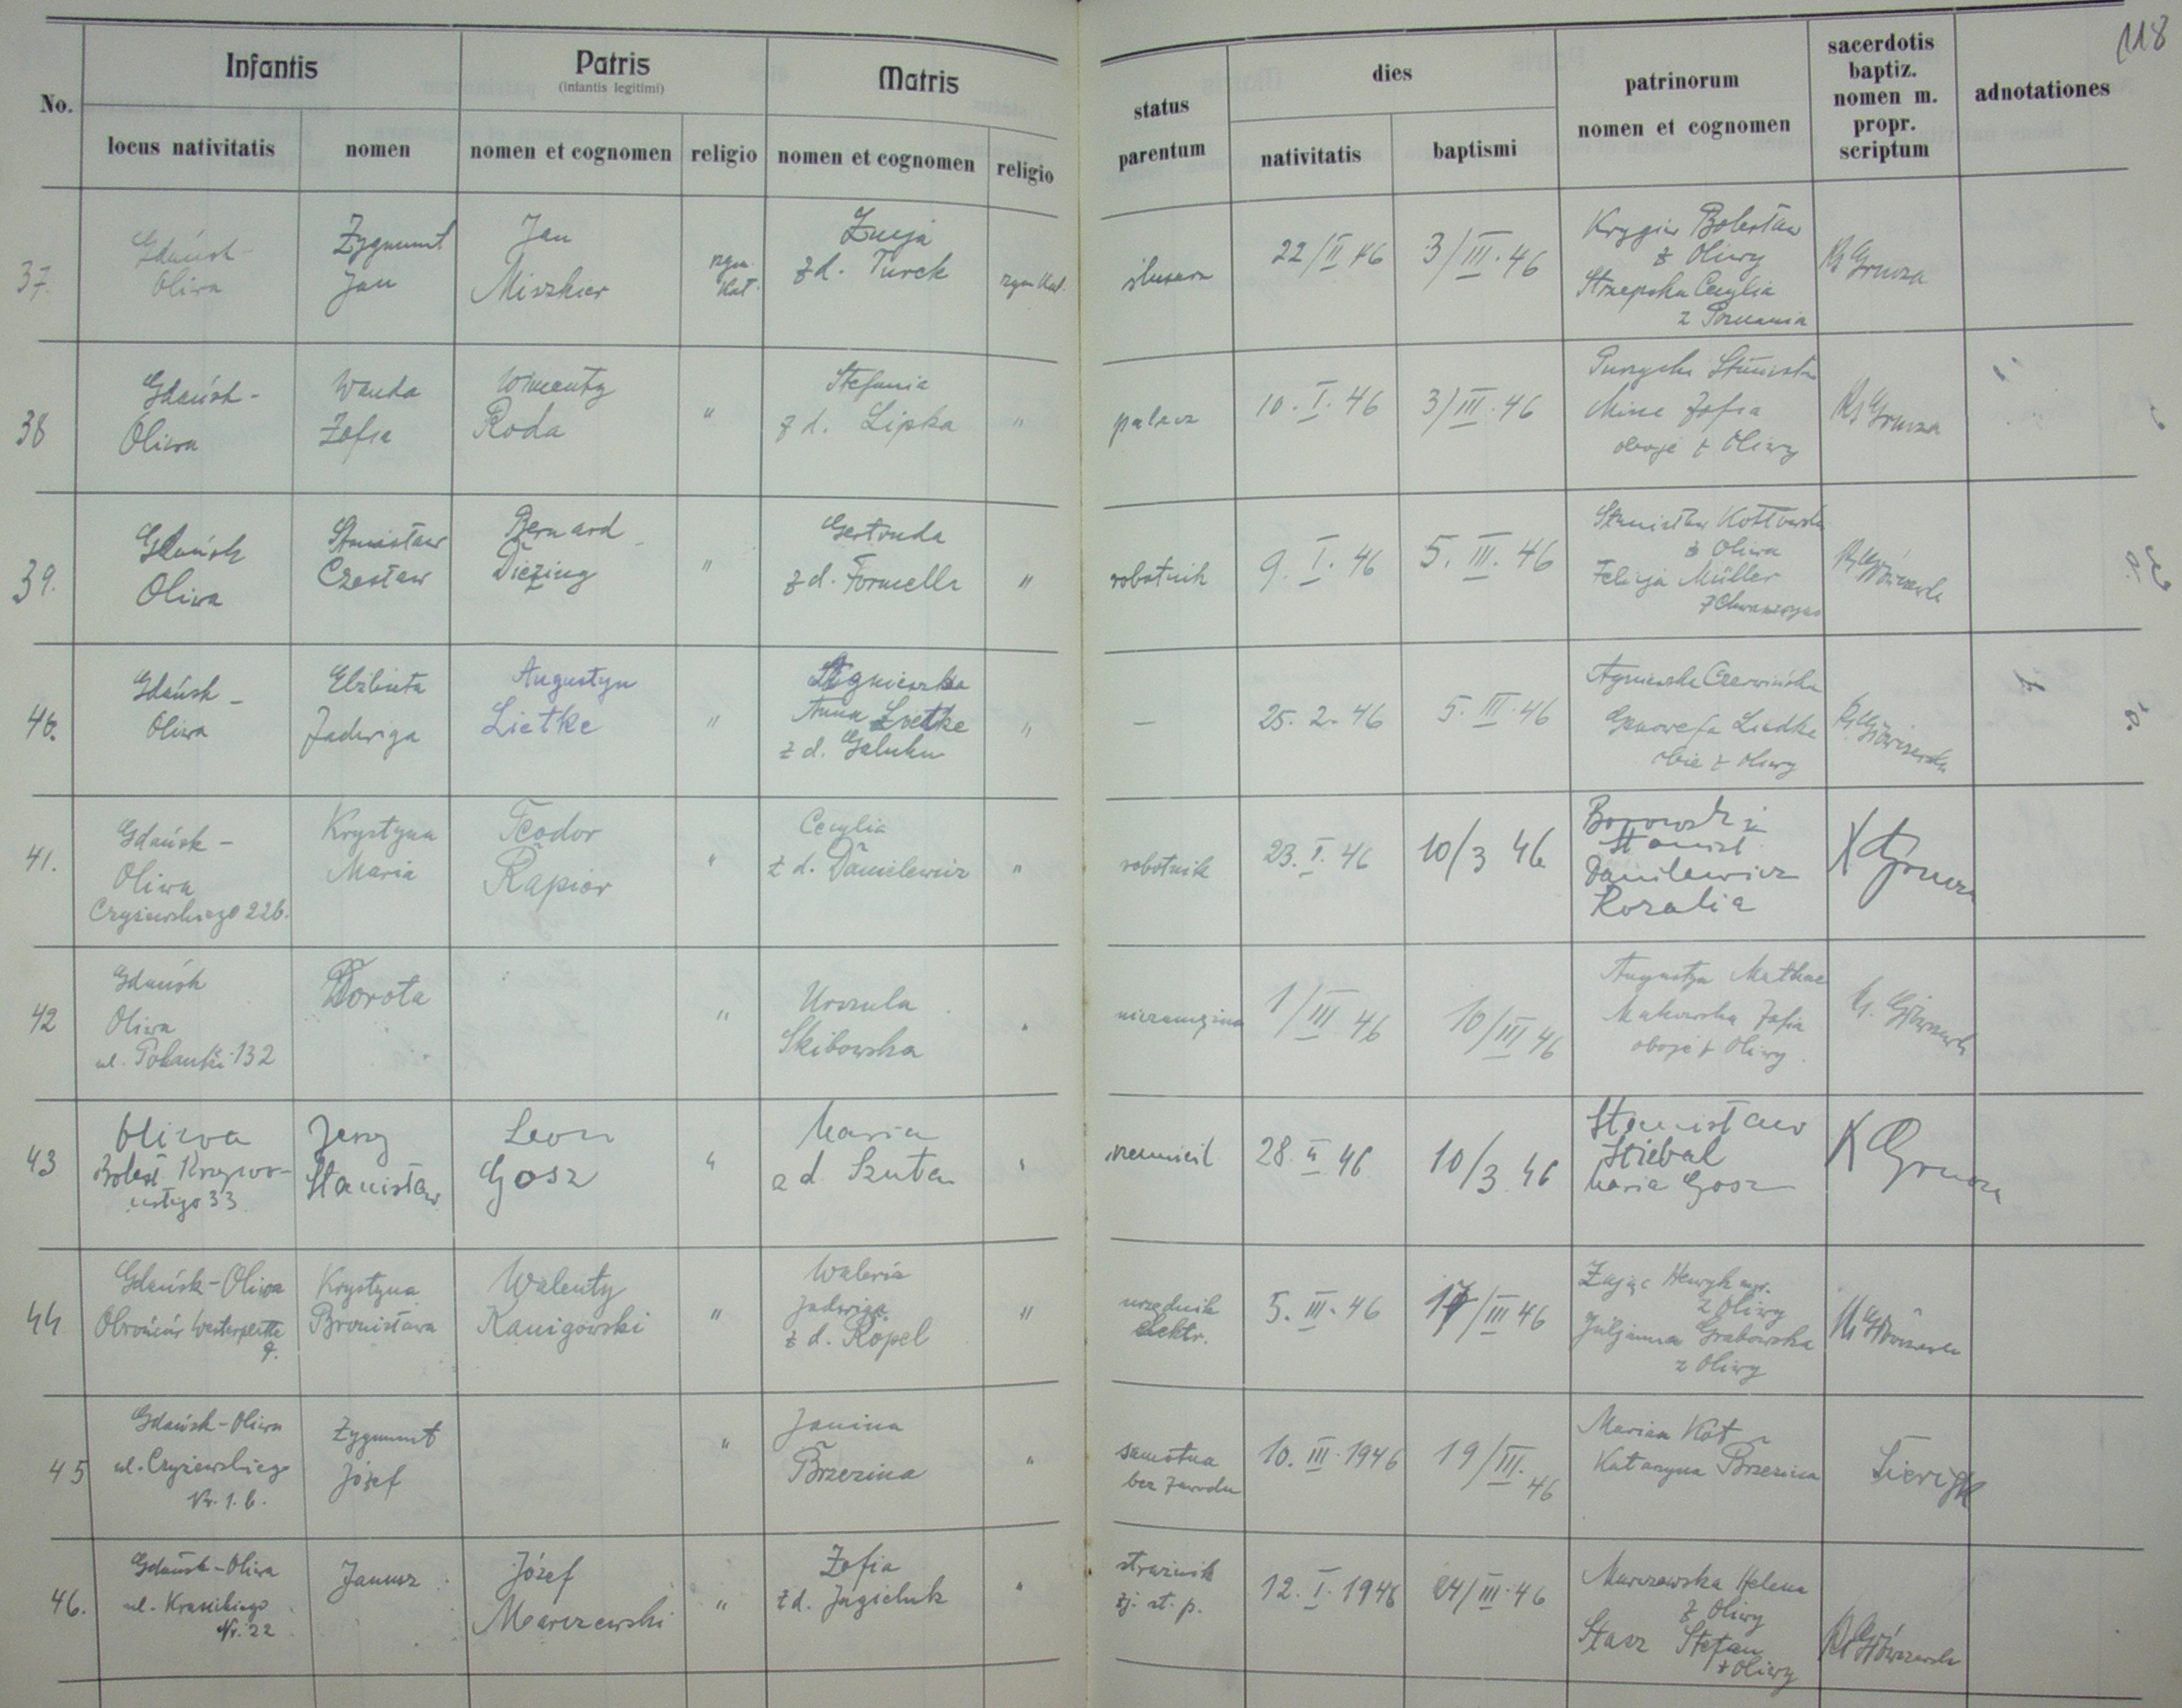 118
No.
Infantis
Patris
(infantis legitimi)
Matris
status
parentum
dies
patrinorum
nomen et cognomen
sacerdotis
baptiz.
nomen m.
propr.
scriptum
adnotationes
locus nativitatis
nomen
nomen et cognomen
religio
nomen et cognomen
religio
nativitatis
baptismi
37.
Gdańsk-
Oliwa
Zygmunt
Jan
Jan
Miszkier
rzym.
kat.
Łucja
z d. Turek
rzym kat.
ślusarz
22/II 46
3/III. 46
Bolesław
z Oliwy
Cecylia
z Poznania
Ks Grucza
38
Gdańsk-
Oliwa
Wanda
Zofia
Wincenty
Roda
"
Stefania
z d. Lipka
"
palacz
10. I. 46
3/III. 46
Zofia
oboje z Oliwy
Ks Grucza
39.
Gdańsk
Oliwa
Stanisław
Czesław
Bernard
Diezing
"
Gertruda
z d. Formella
"
robotnik
9. I. 46
5. III. 46
Stanisław
z Oliwa
Felicja Müller
40.
Gdańsk-
Oliwa
Elżbieta
Jadwiga
Augustyn
Lietke
"
Agnieszka
Anna Lietke
z d.
"
—
25. 2. 46
5. III. 46
Agnieszka Czerwińska
Genowefa Liedke
obie z Oliwy
41.
Gdańsk-
Oliwa
Czyżewskiego 22b.
Krystyna
Maria
Teodor
Rapior
"
Cecylia
z d. Danilewicz
"
robotnik
23. I. 46
10/3 46
Borowski
Stanisł
Danilewicz
Rozalia
X Grucza
42
Gdańsk
Oliwa
ul. Polanki 132
Dorota
"
Urszula
Skibowska
"
niezamężna
1/III 46
10/III 46
Augustyn
Makowska Zofia
oboje z Oliwy.
43
Oliwa
Bolesł Krzywo-
ustego 33
Jerzy
Stanisław
Leon
Gosz
"
Maria
z d. Szuta
"
28. II 46
10/3 46
Stanisław
Stiebal
Maria Gosz
X Grucza
44
Gdańsk-Oliwa
Obrońców Westerplatte
9.
Krystyna
Bronisława
Walenty
Kanigowski
"
Waleria
Jadwiga
z d. Ropel
"
urzędnik
elektr.
5. III. 46
17/III 46
Zając Henryk
z Oliwy
Juljanna Grabowska
z Oliwy
45
Gdańsk-Oliwa
ul. Czyżewskiego
Nr. 1. b.
Zygmunt
Józef
"
Janina
Brzezina
"
samotna
bez zawodu
10. III. 1946
19/III.
46
Marian Kot
Katarzyna Brzezina
46.
Gdańsk-Oliwa
ul. Krasickiego
Nr. 22
Janusz
Józef
Marszewski
"
Zofia
z d. Jagieluk
"
strażnik
12. I. 1946
24/III. 46
Marszewska Helena
z Oliwy
Stasz Stefan
z Oliwy